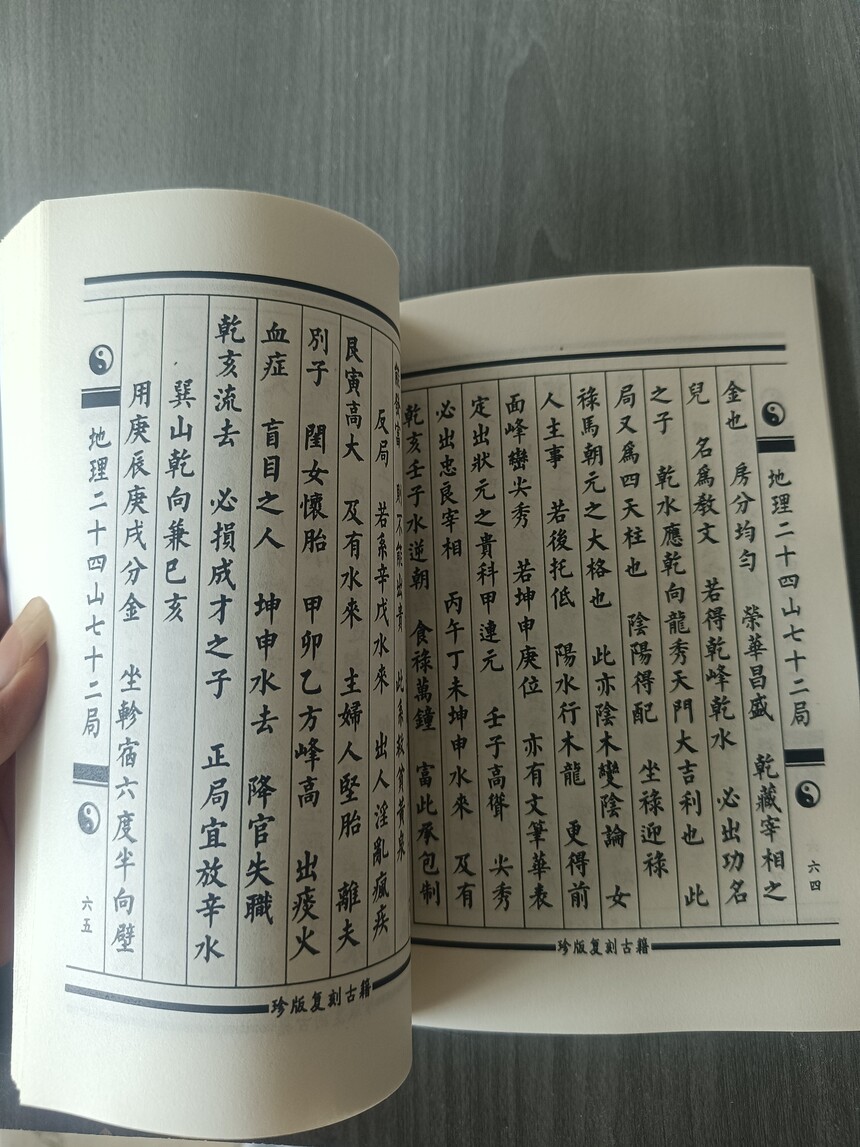 地理二十四山七十二局
六四
金也 房分均勻 榮華昌盛 乾藏宰相之
兒 名爲教文 若得乾峰乾水 必出功名
之子 乾水應乾向龍秀天門大吉利也 此
局又爲四天柱也 陰陽得配 坐祿迎祿
祿馬朝元之大格也 此亦陰木變陰論 女
人主事 若後托低 陽水行木龍 更得前
面峰巒尖秀 若坤申庚位 亦有文筆華表
定出狀元之貴科甲連元 壬子高聳 尖秀
必出忠良宰相 丙午丁未坤申水來 及有
乾亥壬子水逆朝 食祿萬鐘 富此承包制
珍版复刻古籍
能發富 則不能出貴 此系救貧黃泉
反局 若系辛戌水來 出人淫亂瘋疾
艮寅高大 及有水來 主婦人堅胎 離夫
別子 閨女懷胎 甲卯乙方峰高 出痰火
血症 盲目之人 坤申水去 降官失職
乾亥流去 必損成才之子 正局宜放辛水
巽山乾向兼巳亥
用庚辰庚戌分金 坐軫宿六度半向壁
地理二十四山七十二局
六五
珍版复刻古籍